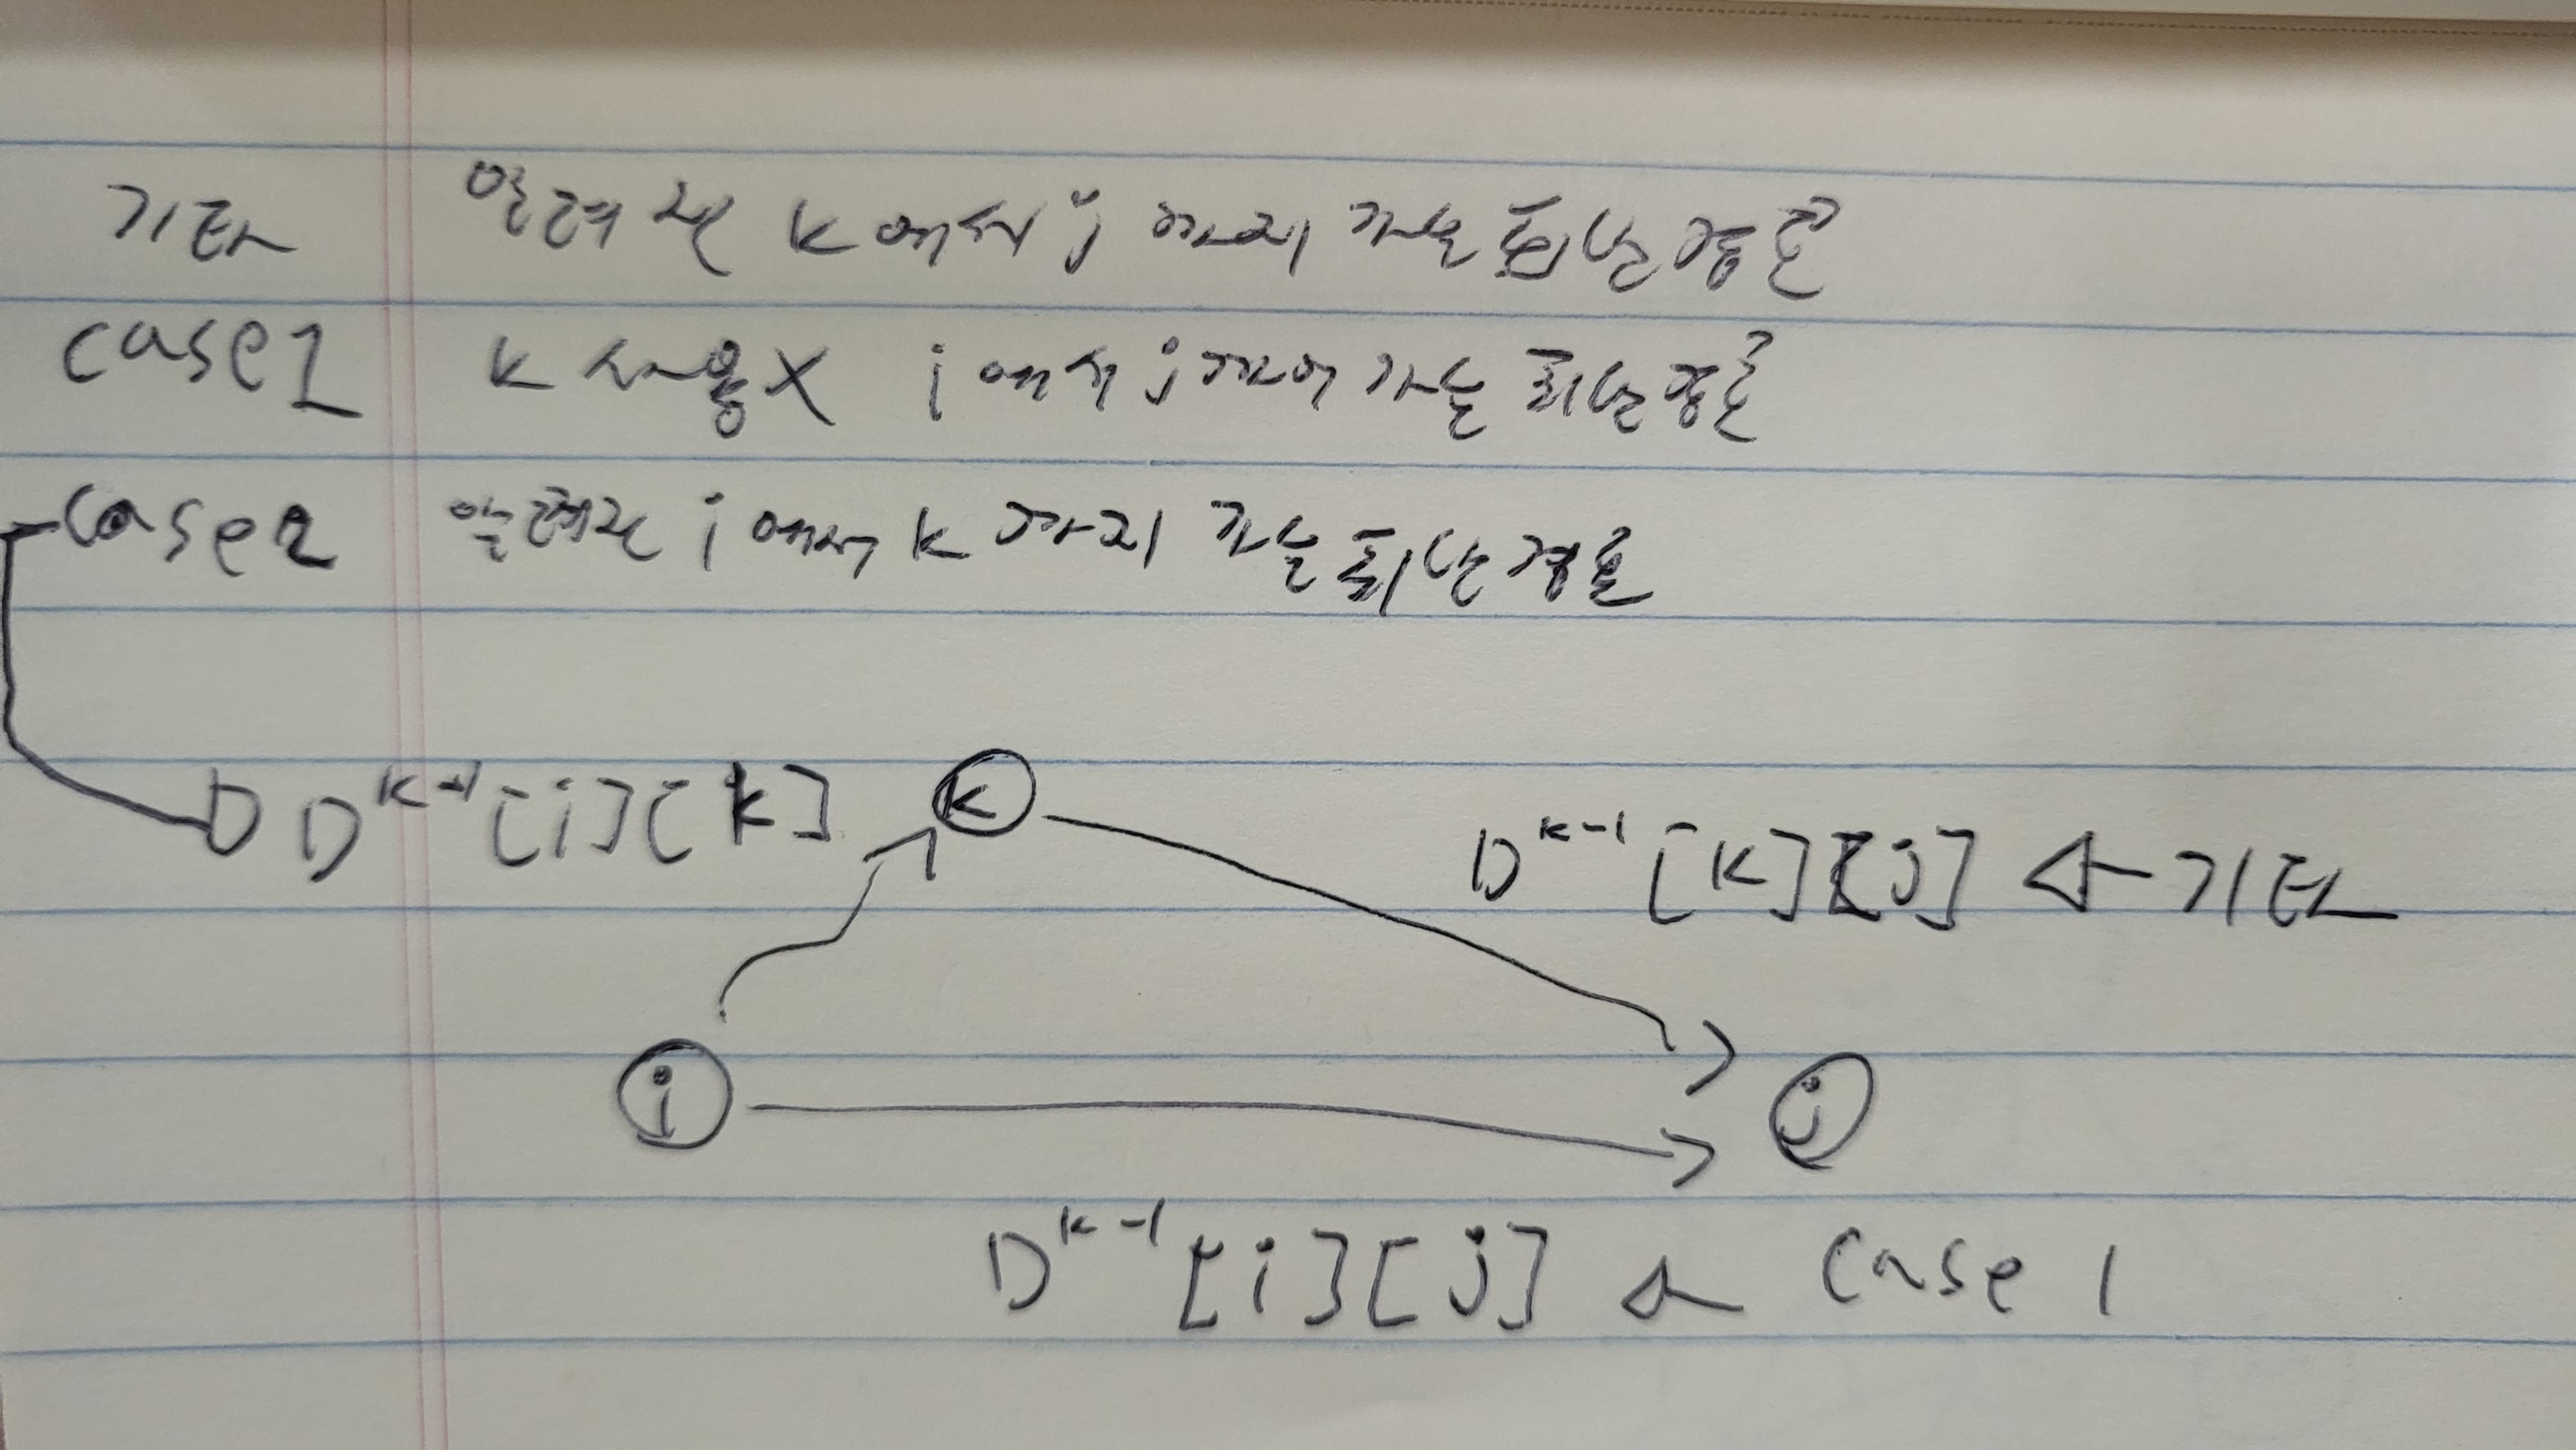 기타 알려진 k에서 j까지 가는 최단경로
case1 k 사용X i에서 j까지 가는 최단경로
case2 알려진 i에서 k까지 가는 최단경로
D^k-1[i][k]
k
D^k-1[k][j] ← 기타
i
j
D^k-1[i][j] ← case 1